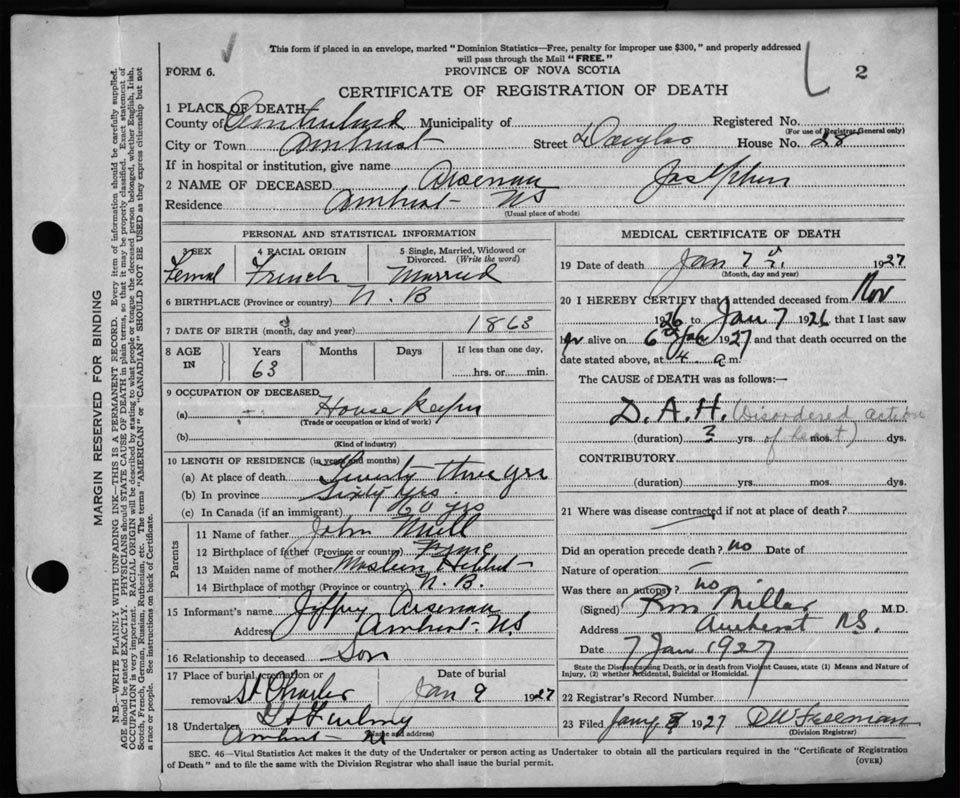 This form if placed in an envelope, marked "Dominion Statistics—Free, penalty for improper use $300," and properly addressed
will pass through the Mail "FREE."
FORM 6.
PROVINCE OF NOVA SCOTIA
2
CERTIFICATE OF REGISTRATION OF DEATH
1 PLACE OF DEATH
County of Cumberland Municipality of Registered No.
(For use of Registrar General only)
City or Town Amherst Street Douglas House No. 28
If in hospital or institution, give name
2 NAME OF DECEASED Arsenau
Residence Amherst NS
(Usual place of abode)
PERSONAL AND STATISTICAL INFORMATION
3 SEX 4 RACIAL ORIGIN 5 Single, Married, Widowed or Divorced. (Write the word)
Femal French Married
6 BIRTHPLACE (Province or country) N. B
7 DATE OF BIRTH (month, day and year) 1863
8 AGE IN Years Months Days If less than one day,
63 hrs. or min.
9 OCCUPATION OF DECEASED
(a) House Keeper
(Trade or occupation or kind of work)
(b)
(Kind of industry)
10 LENGTH OF RESIDENCE (in years and months)
(a) At place of death Twenty three yrs
(b) In province Sixty yrs.
(c) In Canada (if an immigrant) 60 yrs
Parents
11 Name of father John
12 Birthplace of father (Province or country)
13 Maiden name of mother
14 Birthplace of mother (Province or country) N. B.
15 Informant's name Jeffry Arsenau
Address Amherst NS
16 Relationship to deceased Son
17 Place of burial, cremation or removal St Charles Date of burial Jan 9 1927
18 Undertaker
Amherst NS
(Name and address)
MEDICAL CERTIFICATE OF DEATH
19 Date of death Jan 7 1927
(Month, day and year)
20 I HEREBY CERTIFY that I attended deceased from Nov
1926 to Jan 7 1926 that I last saw
her alive on 6th Jan 1927 and that death occurred on the
date stated above, at 4 a m.
The CAUSE OF DEATH was as follows:—
D.A.H. (Disordered action of heart)
(duration) ? yrs. mos. dys.
CONTRIBUTORY
(duration) yrs. mos. dys.
21 Where was disease contracted if not at place of death?
Did an operation precede death? no Date of
Nature of operation —
Was there an autopsy? no
(Signed) Miller M.D.
Address Amherst N.S.
Date 7 Jan 1927
State the Disease causing Death, or in death from Violent Causes, state (1) Means and Nature of
Injury, (2) whether Accidental, Suicidal or Homicidal.
22 Registrar's Record Number
23 Filed Jany 8 1927
(Division Registrar)
SEC. 46—Vital Statistics Act makes it the duty of the Undertaker or person acting as Undertaker to obtain all the particulars required in the "Certificate of Registration
of Death" and to file the same with the Division Registrar who shall issue the burial permit.
(OVER)
MARGIN RESERVED FOR BINDING
N.B.—WRITE PLAINLY WITH UNFADING INK—THIS IS A PERMANENT RECORD. Every item of information should be carefully supplied.
AGE should be stated EXACTLY. PHYSICIANS should STATE CAUSE OF DEATH in plain terms, so that it may be properly classified. Exact statement of
OCCUPATION is very important. RACIAL ORIGIN will be described by stating to what people or tongue the deceased person belonged, whether English, Irish,
Scotch, French, German, Russian, Ruthenian, etc. The terms "AMERICAN" or "CANADIAN" SHOULD NOT BE USED as they express citizenship but not
a race or people. See instructions on back of Certificate.